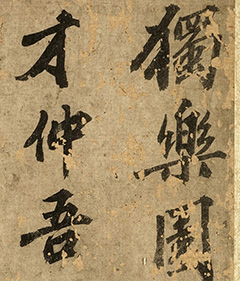 獨樂園
才伸吾